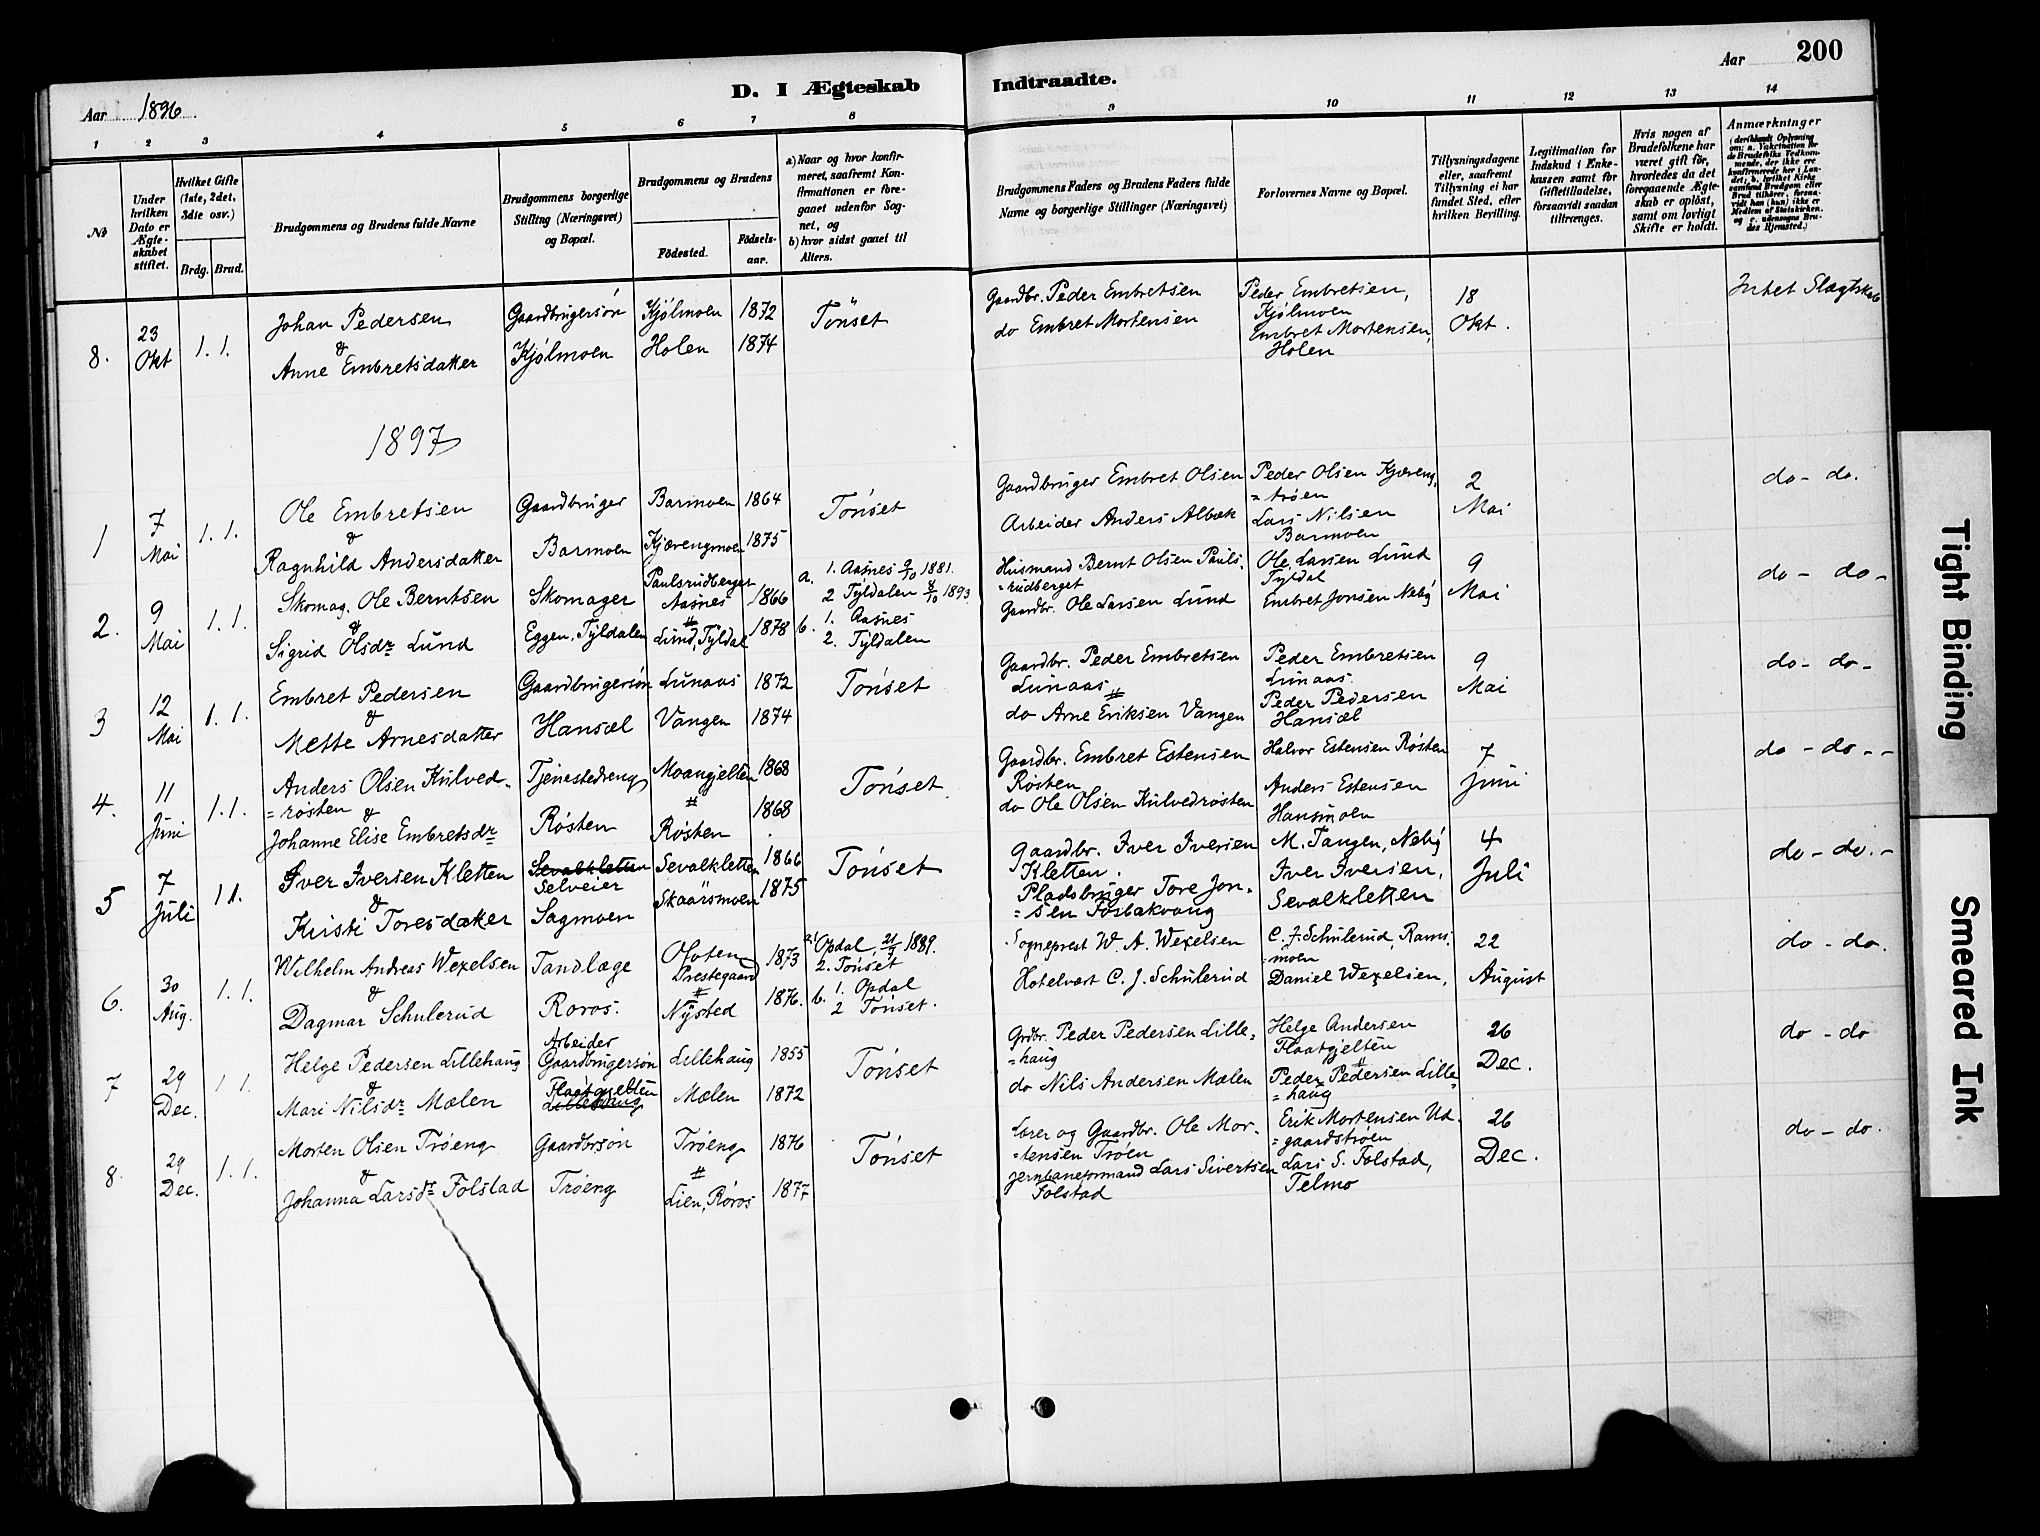 Aar 1896.
D. I Ægteskab
Indtraadte.
Aar 200
1 2 3 4 5 6 7 8 9 10 11 12 13 14
№
Under hvilken Dato er Ægteskabet stiftet.
Hvilket Gifte (1ste, 2det, 3die osv.)
Brdg. Brud.
Brudgommens og Brudens fulde Navne
Brudgommens borgerlige Stilling (Næringsvei) og Bopæl.
Brudgommens og Brudens
Födested.
Födselsaar.
a) Naar og hvor konfirmeret, saafremt Konfirmationen er foregaaet udenfor Sognet, og
b) hvor sidst gaaet til Alters.
Brudgommens Faders og Brudens Faders fulde Navne og borgerlige Stillinger (Næringsvei)
Forlovernes Navne og Bopæl.
Tillysningsdagene eller, saafremt Tillysning ei har fundet Sted, efter hvilken Bevilling.
Legitimation for Indskud i Enkekassen samt for Giftetilladelse, forsaavidt saadan tiltrænges.
Hvis nogen af Brudefolkene har været gift för, hvorledes da det foregaaende Ægteskab er oplöst, samt om lovligt Skifte er holdt.
Anmærkninger
8. 23 Okt 1. 1.
Johan Pedersen
&
Anne Embretsdatter
Gaardbrugersön
Kjølmoen
Kjølmoen 1872
Holen 1874
Tönset
Gaardbr. Peder Embretsen
do Embret Mortensen
Peder Embretsen,
Kjølmoen
Embret Mortensen,
Holen
18
Okt.
Intet Slægtskab
1897
1 7 Mai 1. 1.
Ole Embretsen
&
Ragnhild Andersdatter
Gaardbruger
Barmoen
Barmoen 1864
Kjærengmoen 1875
Tönset
Gaardbruger Embret Olsen
Arbeider Anders Albæk
Peder Olsen Kjæreng,
=trøen
Lars Nilsen
Barmoen
2
Mai
do - do.
2. 9 Mai 1. 1.
Skomag. Ole Berntsen
&
Sigrid Olsdr Lund
Skomager
Eggen, Tyldalen
Paulsrudberget
Aasnes 1866
Lund, Tyldal 1878
a. 1. Aasnes 9/10 1881.
2 Tyldalen 8/10 1893
b. 1. Aasnes
2. Tyldalen
Husmand Bernt Olsen Pauls,
=rudberget
Gaardbr. Ole Larsen Lund
Ole Larsen Lund
Tyldal
Embret Jonsen Neby
9
Mai
do - do -
3 12 Mai 1. 1.
Embret Pedersen
&
Mette Arnesdatter
Gaardbrugersön
Hansæl
Lunaas 1872
Vangen 1874
Tönset
Gaardbr. Peder Embretsen
Lunaas
do Arne Eriksen Vangen
Peder Embretsen
Lunaas.
Peder Pedersen
Hansæl
9
Mai
do - do -
4. 11 Juni 1. 1.
Anders Olsen Kulved-
=rösten &
Johanne Elise Embretsdr
Tjenestedreng
Rösten
Moangjelten 1868
Rösten 1868
Tönset
Gaardbr. Embret Estensen
Rösten
do Ole Olsen Kulvedrösten
Halvor Estensen Rösten
Anders Estensen
Hansmoen
7
Juni
do - do - -
5 7 Juli 1 1.
Iver Iversen Kletten
&
Kristi Toresdatter
Sevalkletten
Selveier
Sagmoen
Sevalkletten 1866
Skaarsmoen 1875
Tönset
Gaardbr. Iver Iversen
Kletten.
Pladsbruger Tore Jon-
=sen Fosbakvang
M. Tangen, Neby
Iver Iversen,
Sevalkletten
4
Juli
do - do. -
6. 30 Aug. 1. 1.
Wilhelm Andreas Wexelsen
&
Dagmar Schulerud
Tandlæge
Roros.
Ofoten
Prestegaard 1873
Nysted 1876.
a. 1 Opdal 21/7 1889.
2. Tönset
b. 1. Opdal
2 Tönset.
Sogneprest W. A. Wexelsen
Hotelvært C. J. Schulerud
C. J. Schulerud, Rams,
=moen
Daniel Wexelsen,
22
August
do - do.
7 29 Dec. 1 1.
Helge Pedersen Lillehaug
&
Mari Nilsdr Mælen
Arbeider
Gaardbrugersön
Flaatgjelten
Lillehaug
Lillehaug 1855
Mælen 1872
Tönset
Grdbr. Peder Pedersen Lille,
=haug
do Nils Andersen Mælen
Helge Andersen
Flaatgjelten
Peder Pedersen Lille,
=haug
26
Dec.
do - do
8. 29 Dec. 1. 1.
Morten Olsen Tröeng
&
Johanna Larsdr Folstad
Gaardbrsön
Tröeng
Tröeng 1876
Lien, Röros 1877
Tönset
Lærer og Gaardbr. Ole Mor-
=tensen Tröen
Jernbaneformand Lars Sivertsen
Folstad
Erik Mortensen Ud.
=gaardströen
Lars S. Folstad,
Telmo
26
Dec.
do - do.
Tight Binding
Smeared Ink